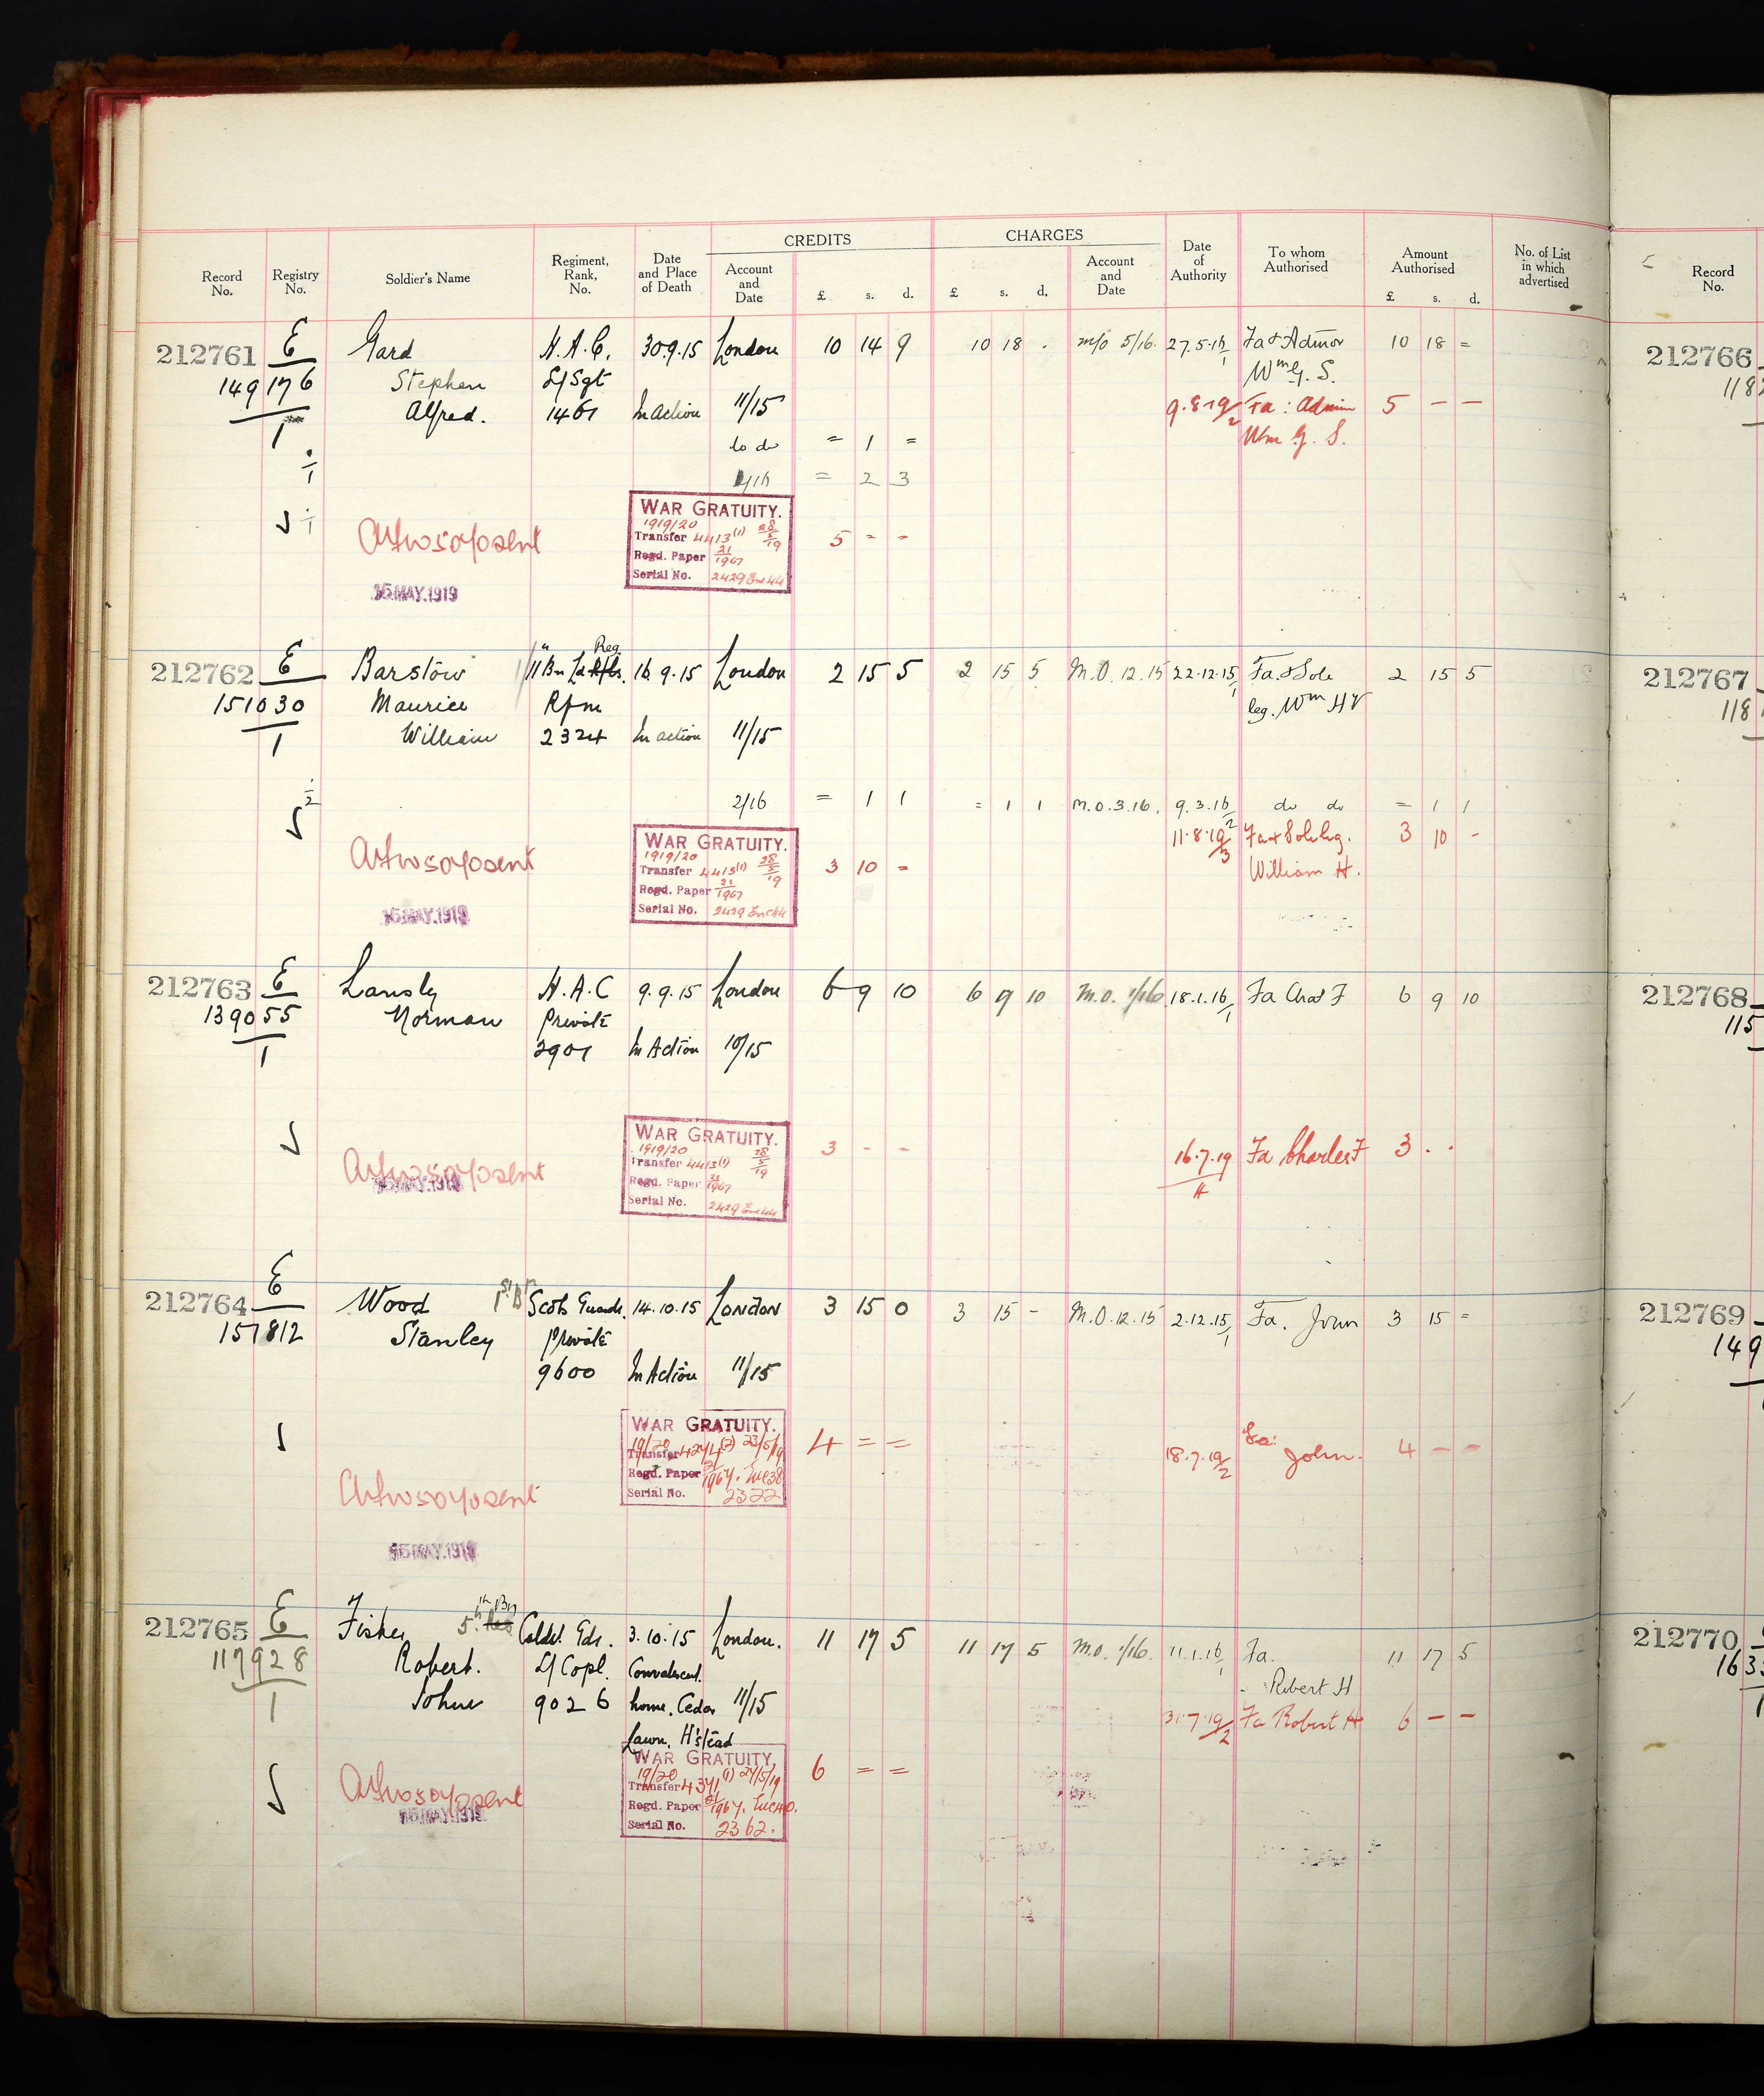 CREDITS CHARGES
Record No. Registry No. Soldier's Name Regiment, Rank, No. Date and Place of Death Account and Date £ s. d. £ s. d. Account and Date Date of Authority To whom Authorised Amount Authorised £ s. d. No. of List in which advertised Record No.
212761 E Gard H.A.C. 30.9.15 London 10 14 9 10 18 . m/o 5/16. 27.5.16/1 Fa & Admor 10 18 =
149176 Stephen L/Sgt Wm G. S.
1 Alfred. 1461 In action 11/15 9.8.19/2 Fa: Admin 5 — —
to do = 1 = Wm G. S.
1 = 2 3
1
WAR GRATUITY.
1919/20
Transfer 4413(1) 28/5/19 5 - -
Regd. Paper 21/1967
Serial No. 2429
MAY.1919
212762 E Barstow 11 Bn Ln Reg. 16.9.15 London 2 15 5 2 15 5 M.O. 12.15 22.12.15/1 Fa. & Sole 2 15 5
151030 Maurice Rfm leg. Wm H
1 William 2324 In action 11/15
2 2/16 = 1 1 = 1 1 M.O. 3.16. 9.3.16/2 do do = 1 1
11.8.19/3 Fa & Sole leg. 3 10 -
William H.
WAR GRATUITY.
1919/20
Transfer 4413(1) 28/5/19 3 10 -
Regd. Paper 21/1967
Serial No. 2429
MAY.1919
212763 E Lansly H.A.C 9.9.15 London 6 9 10 6 9 10 M.O. 1/16 18.1.16/1 Fa Chas F 6 9 10
139055 Norman Private
1 2901 In Action 10/15
WAR GRATUITY.
1919/20
Transfer 4413(1) 28/5/19 3 - - 16.7.19 Fa Charles F 3 . .
Regd. Paper 21/1967
Serial No. 2429
MAY.1919
212764 E Wood 1st Bn Scots Guards. 14.10.15 London 3 15 0 3 15 - M.O. 12.15 2.12.15/1 Fa. John 3 15 =
157812 Stanley Private
9600 In Action 11/15
WAR GRATUITY.
19/20
Transfer 4274(2) 23/5/19 4 = = 18.7.19/2 Fa: John. 4 — —
Regd. Paper 21/1967.
Serial No. 2322
MAY.1919
212765 E Fisher 5th Bn Coldst. Gds. 3.10.15 London. 11 17 5 11 17 5 M.O. 1/16. 11.1.16/1 Fa. 11 17 5
117928 Robert. L/Copl. Convalescent Robert H
1 John 9026 home. Cedar 11/15 31.7.19/2 Fa Robert H 6 — —
Lawn. H'stead
WAR GRATUITY.
19/20
Transfer 4341(1) 24/5/19 6 = =
Regd. Paper 21/1967.
Serial No. 2362.
212766
118
212767
118
212768
115
212769
149
212770
163